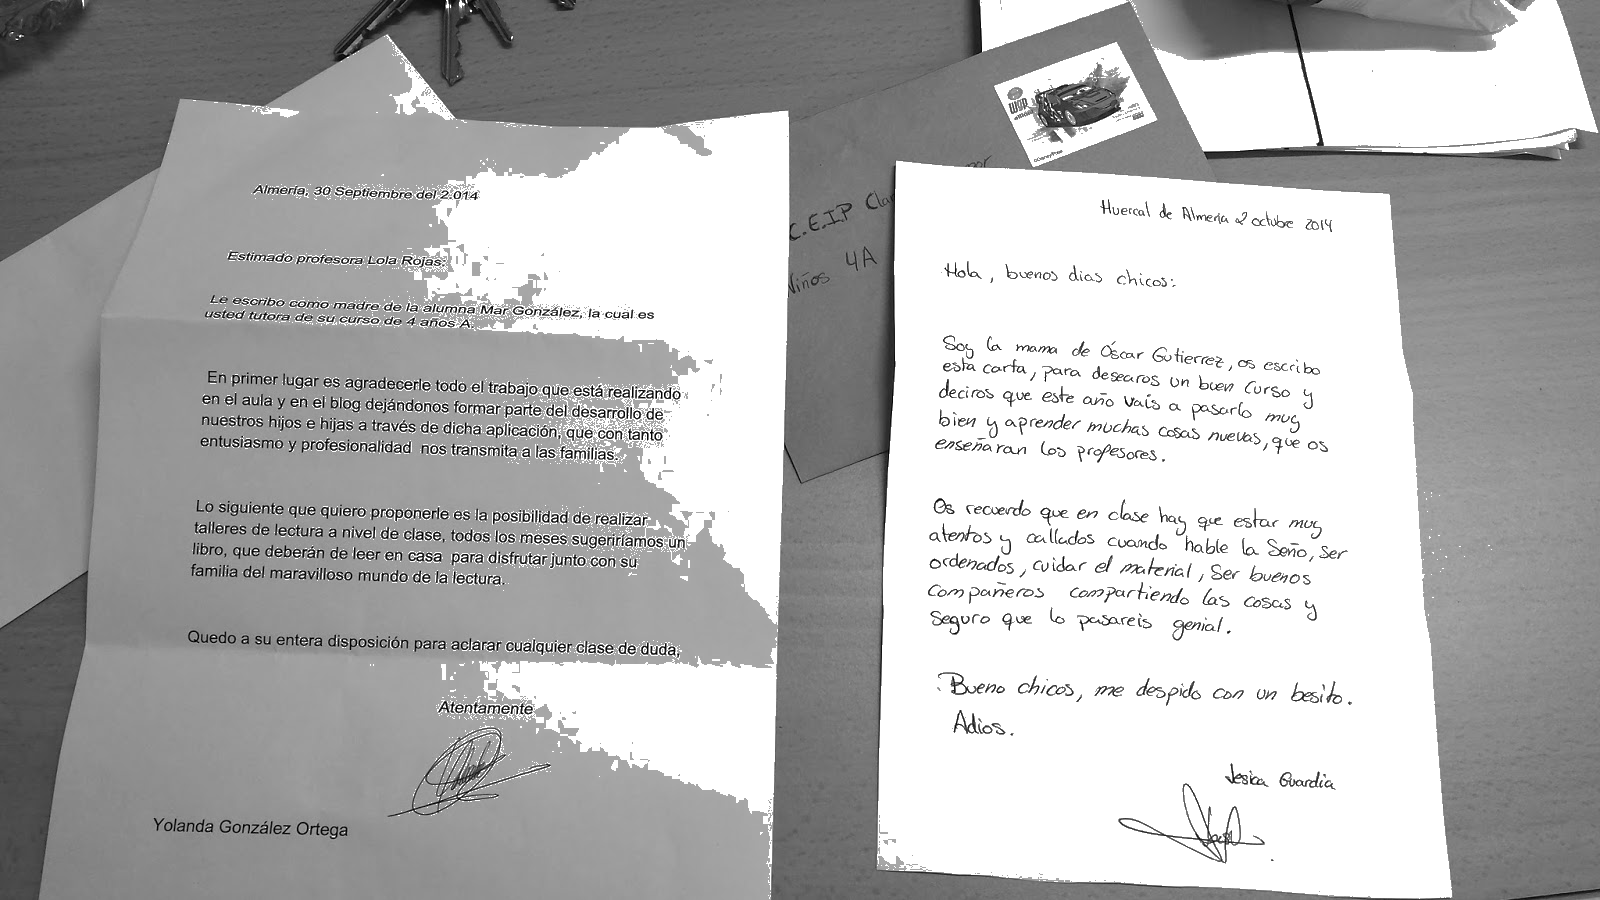 Almería, 30 Septiembre del 2.014
Estimado profesora Lola Rojas:
Le escribo como madre de la alumna Mar González, la cual es
usted tutora de su curso de 4 años A.
En primer lugar es agradecerle todo el trabajo que está realizando
en el aula y en el blog dejándonos formar parte del desarrollo de
nuestros hijos e hijas a través de dicha aplicación, que con tanto
entusiasmo y profesionalidad nos transmita a las familias.
Lo siguiente que quiero proponerle es la posibilidad de realizar
talleres de lectura a nivel de clase, todos los meses sugeriríamos un
libro, que deberán de leer en casa para disfrutar junto con su
familia del maravilloso mundo de la lectura.
Quedo a su entera disposición para aclarar cualquier clase de duda,
Atentamente
Yolanda González Ortega
C.E.I.P
Niños 4A
Huercal de Almeria 2 octubre 2014
Hola, buenos dias chicos:
Soy la mama de Óscar Gutierrez, os escribo
esta carta, para desearos un buen curso y
deciros que este año vais a pasarlo muy
bien y aprender muchas cosas nuevas, que os
enseñaran los profesores.
Os recuerdo que en clase hay que estar muy
atentos y callados cuando hable la Seño, ser
ordenados, cuidar el material, ser buenos
compañeros compartiendo las cosas y
seguro que lo pasareis genial.
Bueno chicos, me despido con un besito.
Adios.
Jesica Guardia